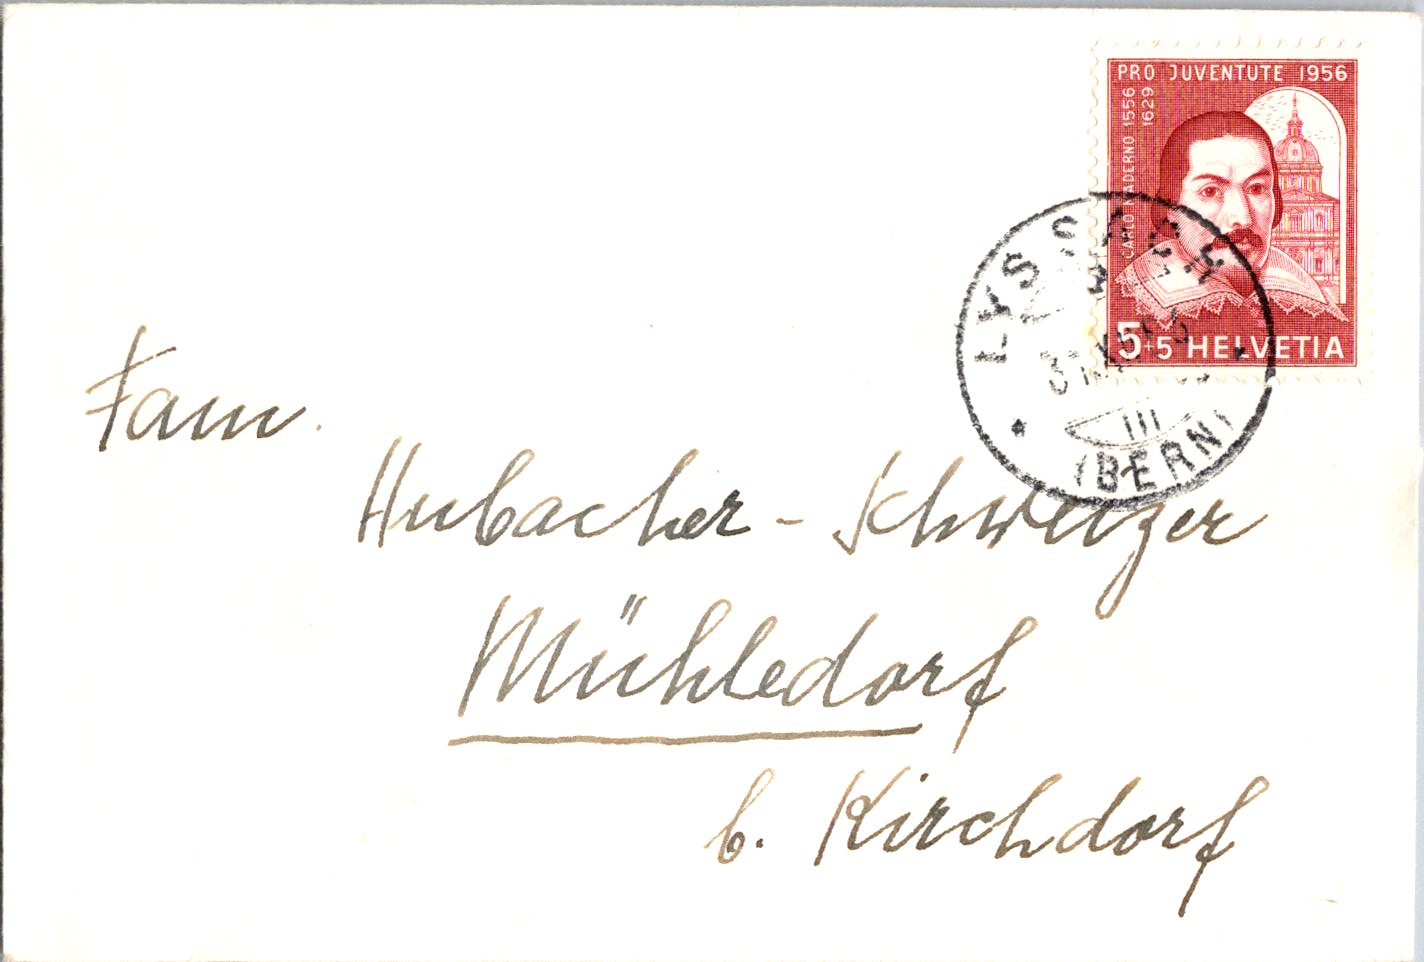 PRO JUVENTUTE 1956
CARLO MADERNO 1556
1629
5+5 HELVETIA
LYSSACH
(BERN)
Fam.
Hubacher - Schweizer
Mühledorf
b. Kirchdorf